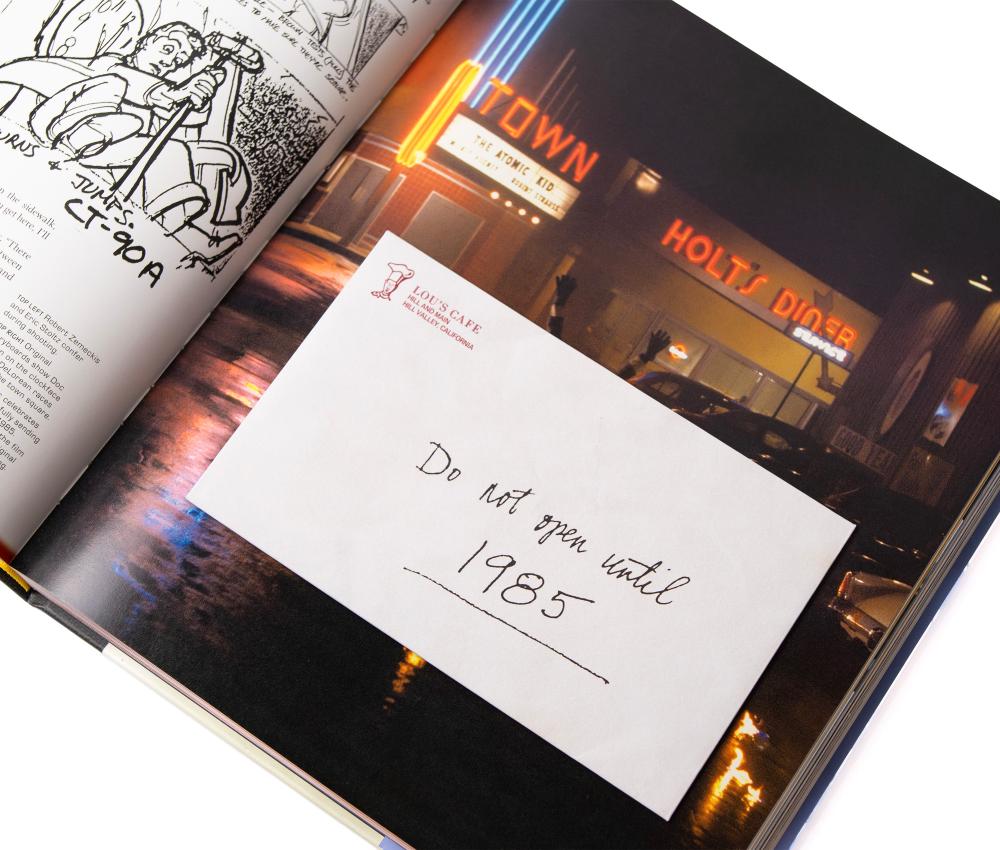 TO MAKE SURE THEY'RE SECURE..
TURNS &
JUMPS.
CT-90A
the sidewalk.
get here, I'll
"There
and
TOP LEFT Robert Zemeckis
and Eric Stoltz confer
during shooting.
TOP RIGHT Original
storyboards show Doc
on the clockface
DeLorean races
the town square.
celebrates
fully sending
1985
the film
TOWN
THE ATOMIC KID
HOLT'S DINER
SERVICE
LOU'S CAFE
HILL AND MAIN
HILL VALLEY, CALIFORNIA
Do not open until
1985